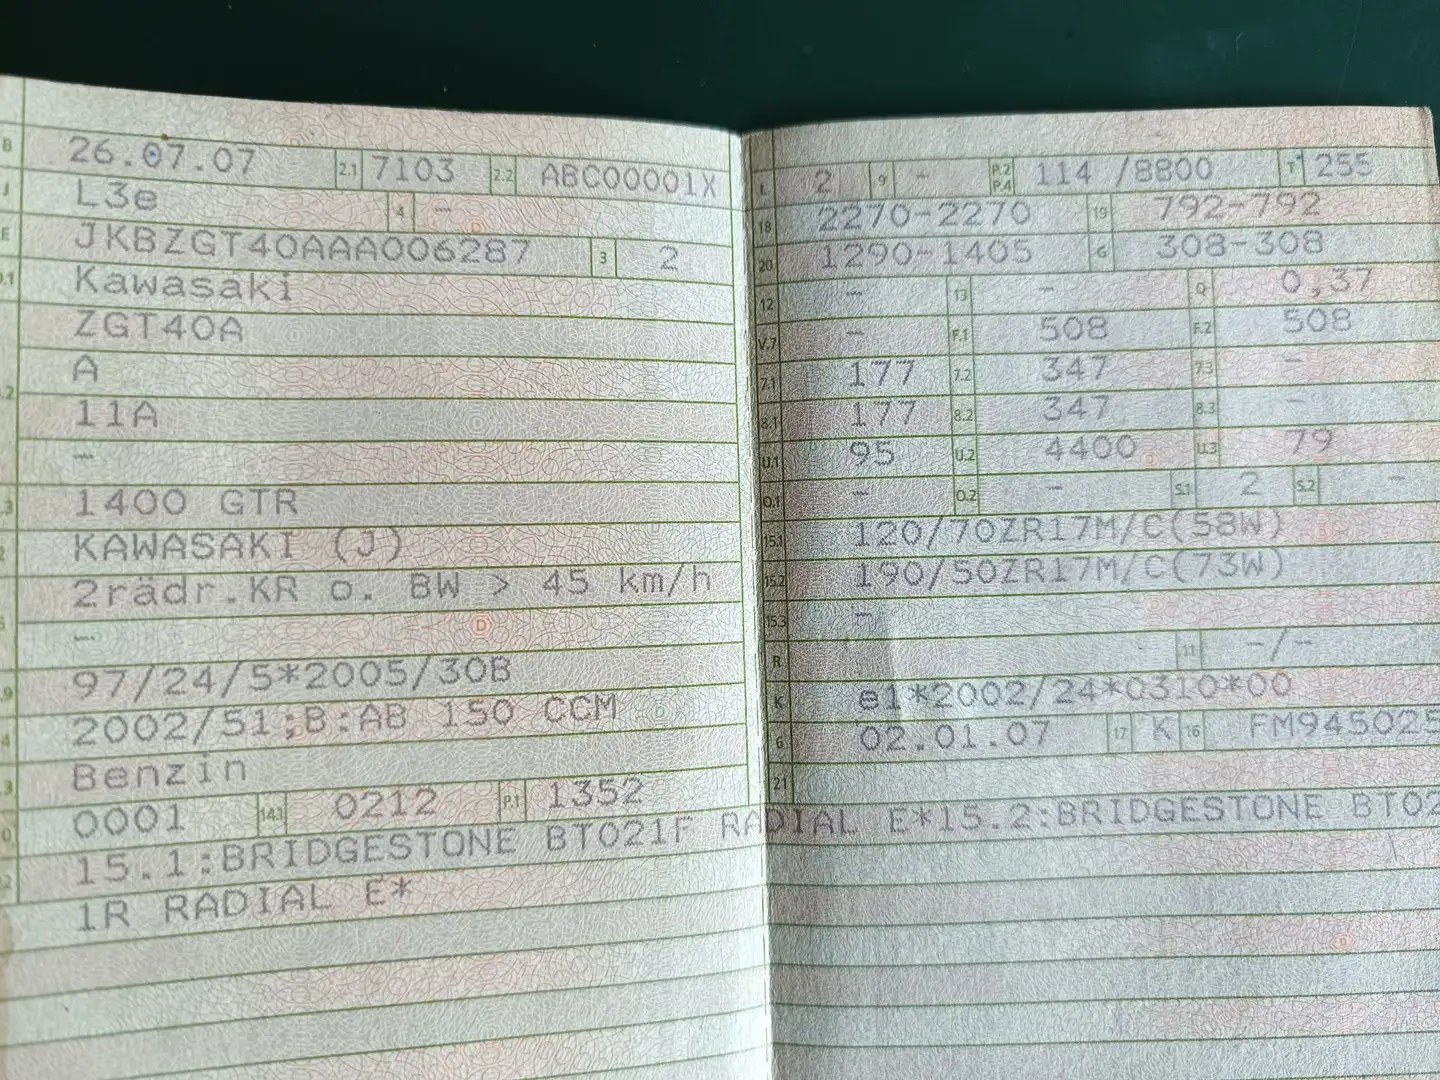 B 26.07.07 2.1 7103 2.2 ABC00001X
J L3e 4 -
E JKBZGT40AAA006287 3 2
.1 Kawasaki
ZGT40A
.2 A
11A
-
.3 1400 GTR
2 KAWASAKI (J)
2rädr.KR o. BW > 45 km/h
5 -
.9 97/24/5*2005/30B
4 2002/51;B:AB 150 CCM
.3 Benzin
0 0001 14.1 0212 P.1 1352
.2 15.1:BRIDGESTONE BT021F RADIAL E*15.2:BRIDGESTONE BT02
1R RADIAL E*
L 2 9 - P.2 P.4 114 /8800 T 255
18 2270-2270 19 792-792
20 1290-1405 G 308-308
12 - 13 - Q 0,37
V.7 - F.1 508 F.2 508
7.1 177 7.2 347 7.3 -
8.1 177 8.2 347 8.3 -
U.1 95 U.2 4400 U.3 79
O.1 - O.2 - S.1 2 S.2 -
15.1 120/70ZR17M/C(58W)
15.2 190/50ZR17M/C(73W)
15.3 -
R 11 -/-
K e1*2002/24*0310*00
6 02.01.07 17 K 16 FM945025
21